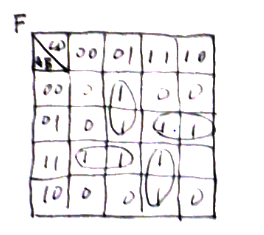 F
CD 00 01 11 10
AB
00 0 1 0 0
01 0 1 1 1
11 1 1 1
10 0 0 1 0